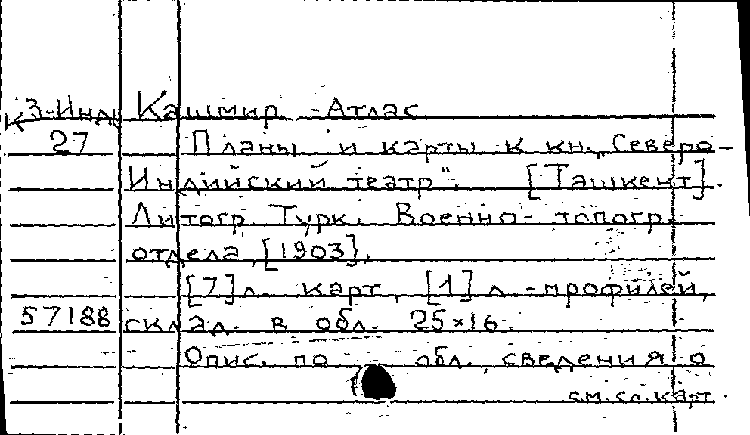 К 3-Инд Кашмир - Атлас
27 Планы и карты к кн. „Северо-
Индийский театр". [Ташкент].
Литогр. Турк. Военно-топогр.
отдела, [1903].
[7] л. карт, [1] л. профилей,
57188 склад. в обл. 25×16.
Опис. по обл., сведения о
см. сл. карт.